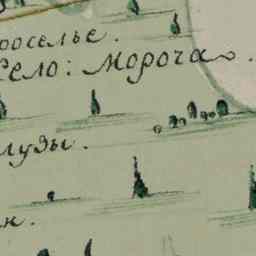 роселье.
Село: Мороча.
лузы.
н.